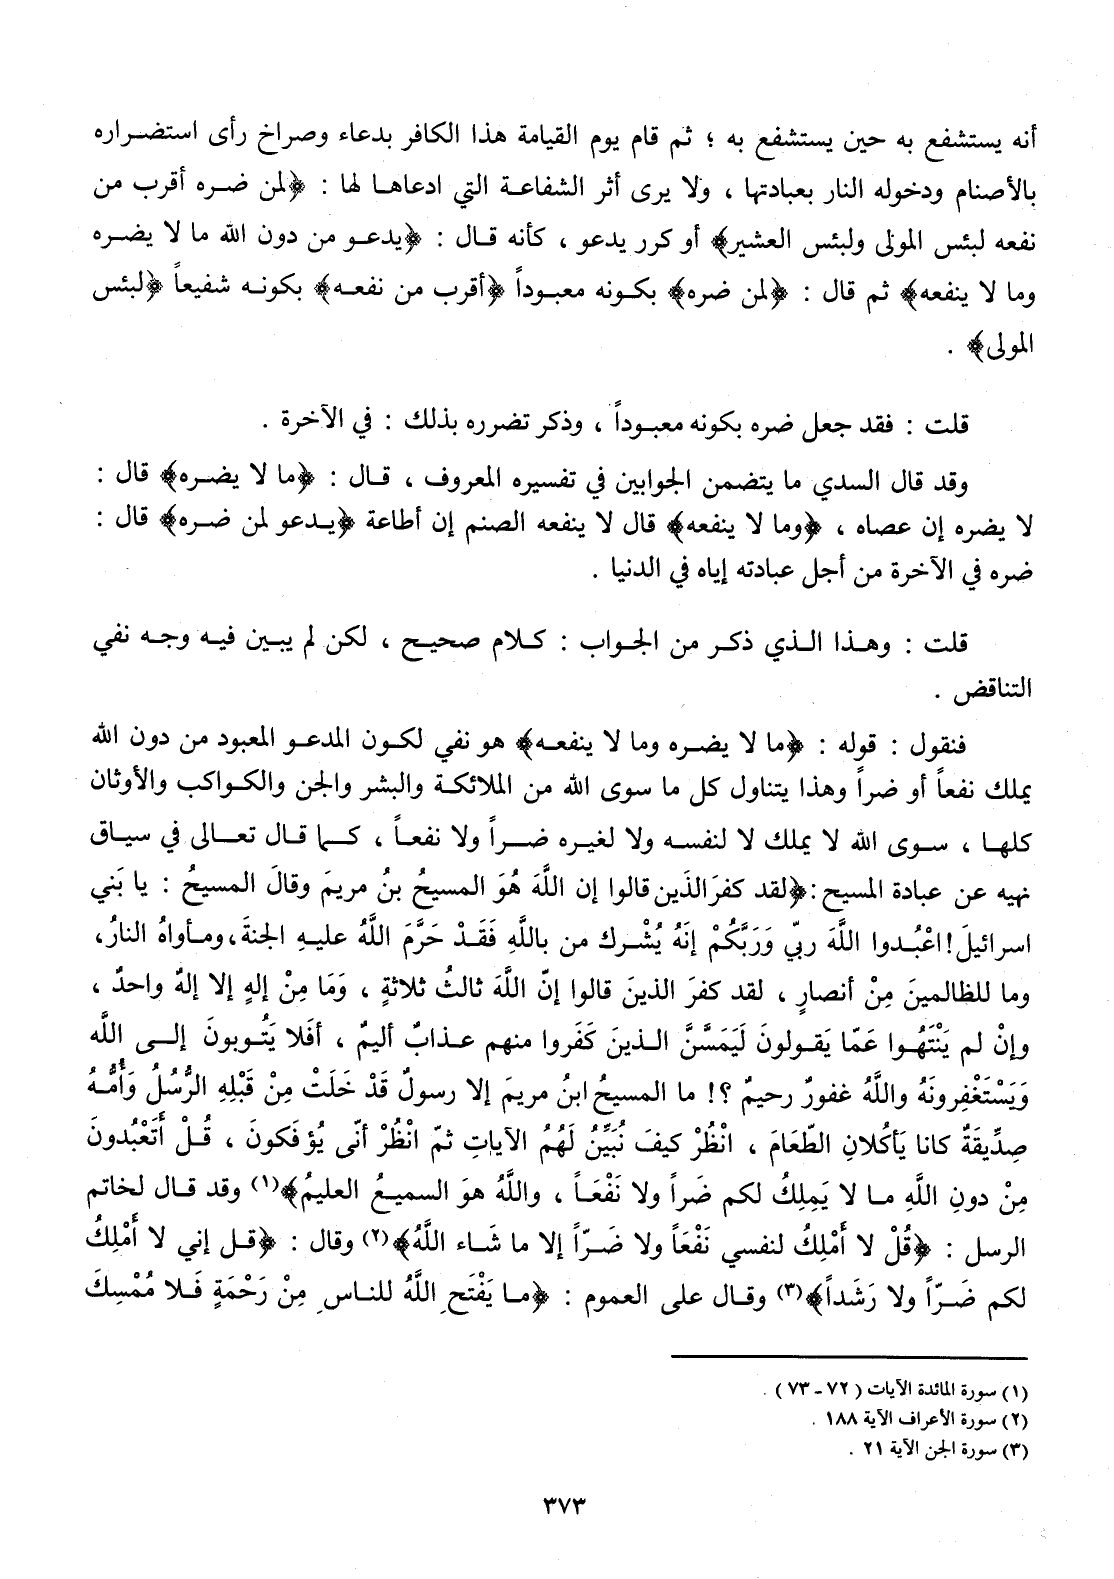 أنه يستشفع به حين يستشفع به ؛ ثم قام يوم القيامة هذا الكافر بدعاء وصراخ رأى استضراره
بالأصنام ودخوله النار بعبادتها ، ولا يرى أثر الشفاعة التي ادعاها لها : ﴿لمن ضره أقرب من
نفعه لبئس المولى ولبئس العشير﴾ أو كرر يدعو ، كأنه قال : ﴿يدعو من دون الله ما لا يضره
وما لا ينفعه﴾ ثم قال : ﴿لمن ضره﴾ بكونه معبوداً ﴿أقرب من نفعه﴾ بكونه شفيعاً ﴿لبئس
المولى﴾ .
قلت : فقد جعل ضره بكونه معبوداً ، وذكر تضرره بذلك : في الآخرة .
وقد قال السدي ما يتضمن الجوابين في تفسيره المعروف ، قال : ﴿ما لا يضره﴾ قال :
لا يضره إن عصاه ، ﴿وما لا ينفعه﴾ قال لا ينفعه الصنم إن أطاعة ﴿يدعو لمن ضره﴾ قال :
ضره في الآخرة من أجل عبادته إياه في الدنيا .
قلت : وهذا الذي ذكر من الجواب : كلام صحيح ، لكن لم يبين فيه وجه نفي
التناقض .
فنقول : قوله : ﴿ما لا يضره وما لا ينفعه﴾ هو نفي لكون المدعو المعبود من دون الله
يملك نفعاً أو ضراً وهذا يتناول كل ما سوى الله من الملائكة والبشر والجن والكواكب والأوثان
كلها ، سوى الله لا يملك لا لنفسه ولا لغيره ضراً ولا نفعاً ، كما قال تعالى في سياق
نهيه عن عبادة المسيح : ﴿لقد كفرَ الذَين قالوا إن اللَّهَ هُوَ المسيحُ بنُ مريمَ وقالَ المسيحُ : يا بَني
اسرائيلَ! اعْبُدوا اللَّهَ ربّي وَرَبَّكُمْ إنَهُ يُشْرك من باللَّهِ فَقَدْ حَرَّمَ اللَّهُ عليهِ الجنةَ، ومأواهُ النارُ،
وما للظالمينَ مِنْ أنصارٍ ، لقد كفرَ الذينَ قالوا إنّ اللَّهَ ثالثُ ثلاثةٍ ، وَمَا مِنْ إلهٍ إلا إلهٌ واحدٌ ،
وإنْ لم يَنْتَهُوا عَمّا يَقولونَ لَيَمَسَّنَّ الذينَ كَفَروا منهم عذابٌ أليمٌ ، أفَلا يَتُوبونَ إلى اللَّه
وَيَسْتَغْفِرونَهُ واللَّهُ غفورٌ رحيمٌ ؟! ما المسيحُ ابنُ مريمَ إلا رسولٌ قَدْ خَلَتْ مِنْ قَبْلِهِ الرُّسُلُ وَأُمُّهُ
صِدِّيقَةٌ كانا يَأكُلانِ الطّعَامَ ، انْظُرْ كيفَ نُبَيِّنُ لَهُمُ الآياتِ ثمّ انْظُرْ أنّى يُؤفَكونَ ، قُلْ أَتَعْبُدونَ
مِنْ دونِ اللَّهِ ما لا يَمِلِكُ لكم ضَراً ولا نَفْعَاً ، واللَّهُ هوَ السميعُ العليمُ﴾(١) وقد قال لخاتم
الرسل : ﴿قُلْ لا أَمْلِكُ لنفسي نَفْعَاً ولا ضَرّاً إلا ما شَاء اللَّهُ﴾(٢) وقال : ﴿قل إني لا أَمْلِكُ
لكم ضَرّاً ولا رَشَداً﴾(٣) وقال على العموم : ﴿ما يَفْتَحِ اللَّهُ للناسِ مِنْ رَحْمَةٍ فَلا مُمْسِكَ
(١) سورة المائدة الآيات (٧٢ ـ ٧٣) .
(٢) سورة الأعراف الآية ١٨٨ .
(٣) سورة الجن الآية ٢١ .
٣٧٣